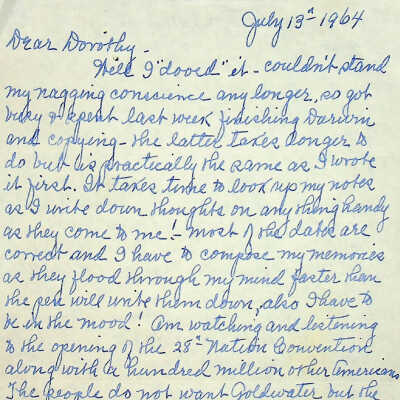 July 13th 1964
Dear Dorothy -
Well I "dooed" it - couldn't stand
my nagging conscience any longer, so got
busy & spent last week finishing Darwin
and copying - the latter takes longer to
do but is practically the same as I wrote
it first. It takes time to look up my notes
as I write down thoughts on any thing handy
as they come to me! - most of the dates are
correct and I have to compose my memories
as they flood through my mind faster than
the pen will write them down, also I have to
be in the mood! Am watching and listening
to the opening of the 28th Nation Convention
along with a hundred million other Americans
The people do not want Goldwater but the